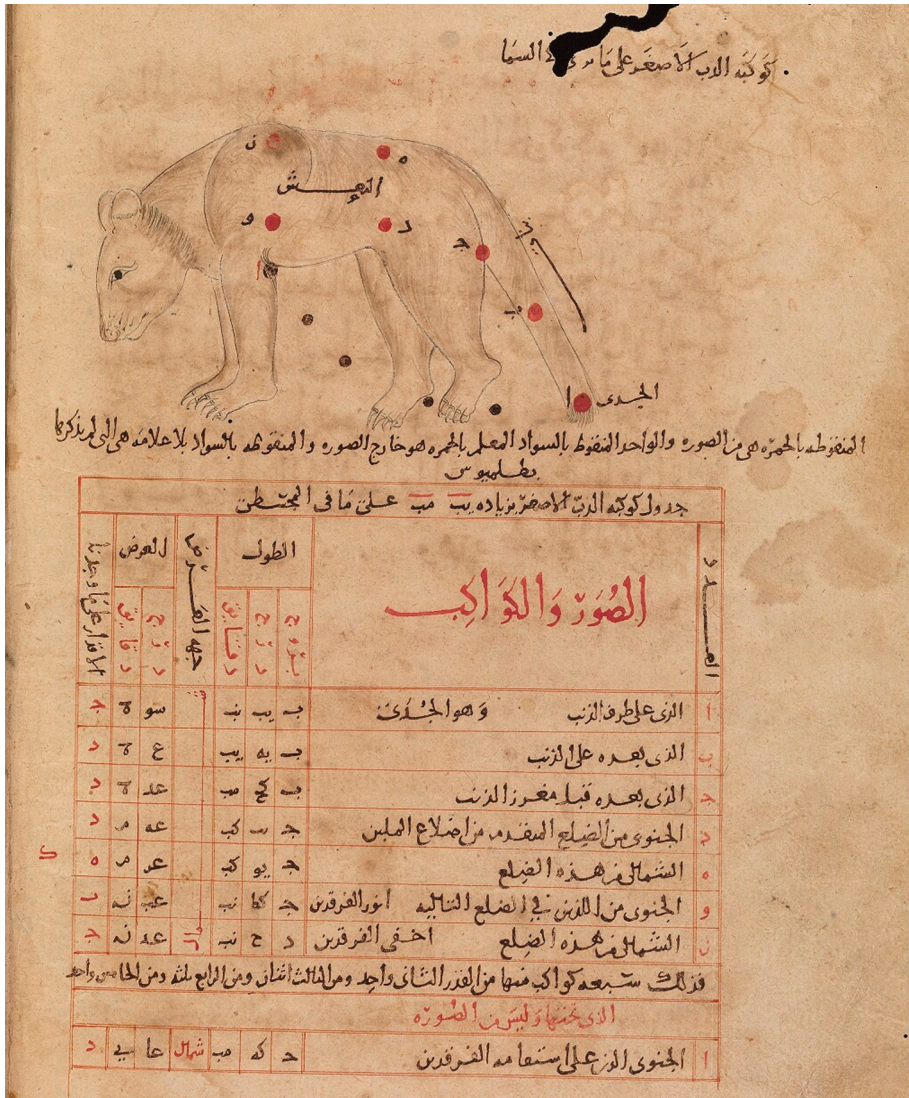 كوكبه الدب الاصغر على ما يرى في السما
ن
ه
النعش
و
د
ج
ب
ا
الجدى
المنقوطه بالحمره هى من الصوره والواحد المنقوط بالسواد المعلم بالحمره هو خارج الصوره والمنقوطه بالسواد بلا علامه هى التى لم يذكرها
بطلميوس
جدول كوكبه الدب الاصغر بزياده يب مب على ما فى المجسطى
العدد الصور والكواكب الطول جهه العرض العرض الاقدار على ما وجدنا
بروج درج دقايق درج دقايق
ا الذى على طرف الذنب وهو الجدى ب يب نب سو ة ج
ب الذى بعده على الذنب ب يه يب ع ة د
ج الذى بعده قبل مغرز الذنب ب كح مب عد ة د
د الجنوبى من الضلع المتقدمه من اضلاع الملبن ج كب عه م د
ه الشمالى من هذه الضلع ج يو كب عز م ه
و الجنوبى من اللذين فى الضلع التاليه انور الفرقدين ج كا نب عب ن ب
ز الشمالى من هذه الضلع اخفى الفرقدين د ح نب عد ن ج
فذلك سبعه كواكب منها من القدر الثانى واحد ومن الثالث اثنان ومن الرابع ثلثه ومن الخامس واحد
الذى تحتها وليس من الصوره
ا الجنوبى الذى على استقامه الفرقدين ج كه مب شمال عا ى د